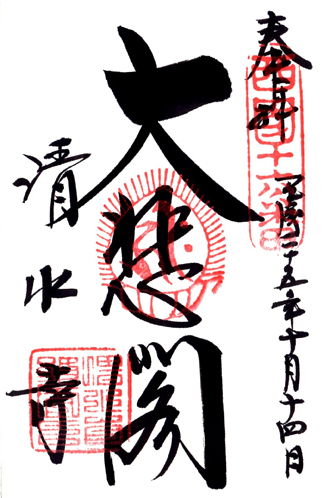 奉拝
西国十六番
平成二十五年十月十四日
大悲閣
清水寺